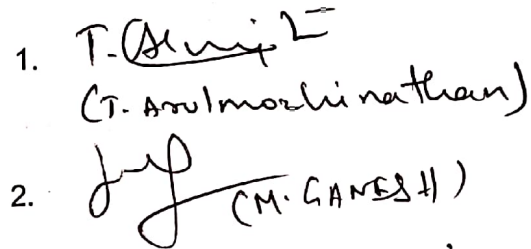 1.
(T. Arulmozhinathan)
2. (M. GANESH)